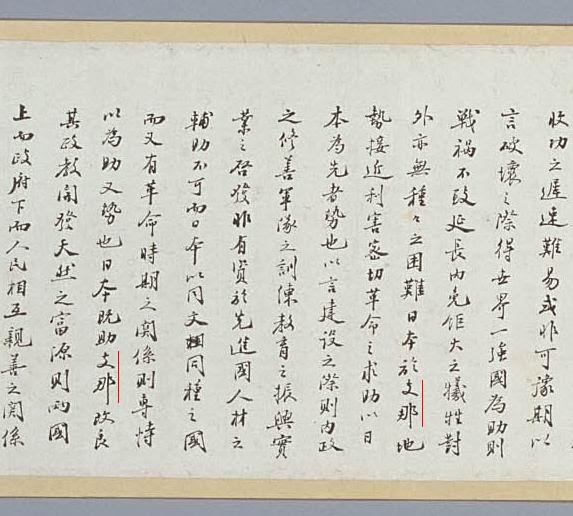 收功之遲速難易或非可豫期以
言破壞之際得世界一強國為助則
戦禍不致延長內免鉅大之犧牲對
外亦無種々之困難日本於支那地
勢接近利害密切革命之求助以日
本為先者勢也以言建設之際則內政
之修善軍隊之訓練教育之振興實
業之啓發非有資於先進國人材之
輔助不可而日本以同文同種之國
而又有革命時期之関係則專恃
以為助又勢也日本既助支那改良
其政教開發天然之富源則両國
上而政府下而人民相互親善之関係